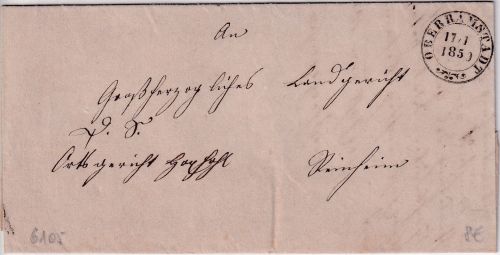 An
Großherzogliches Landgericht
P. S.
Ortsgericht Reinheim
OBERRAMSTADT
17/1
1850
6105 8€